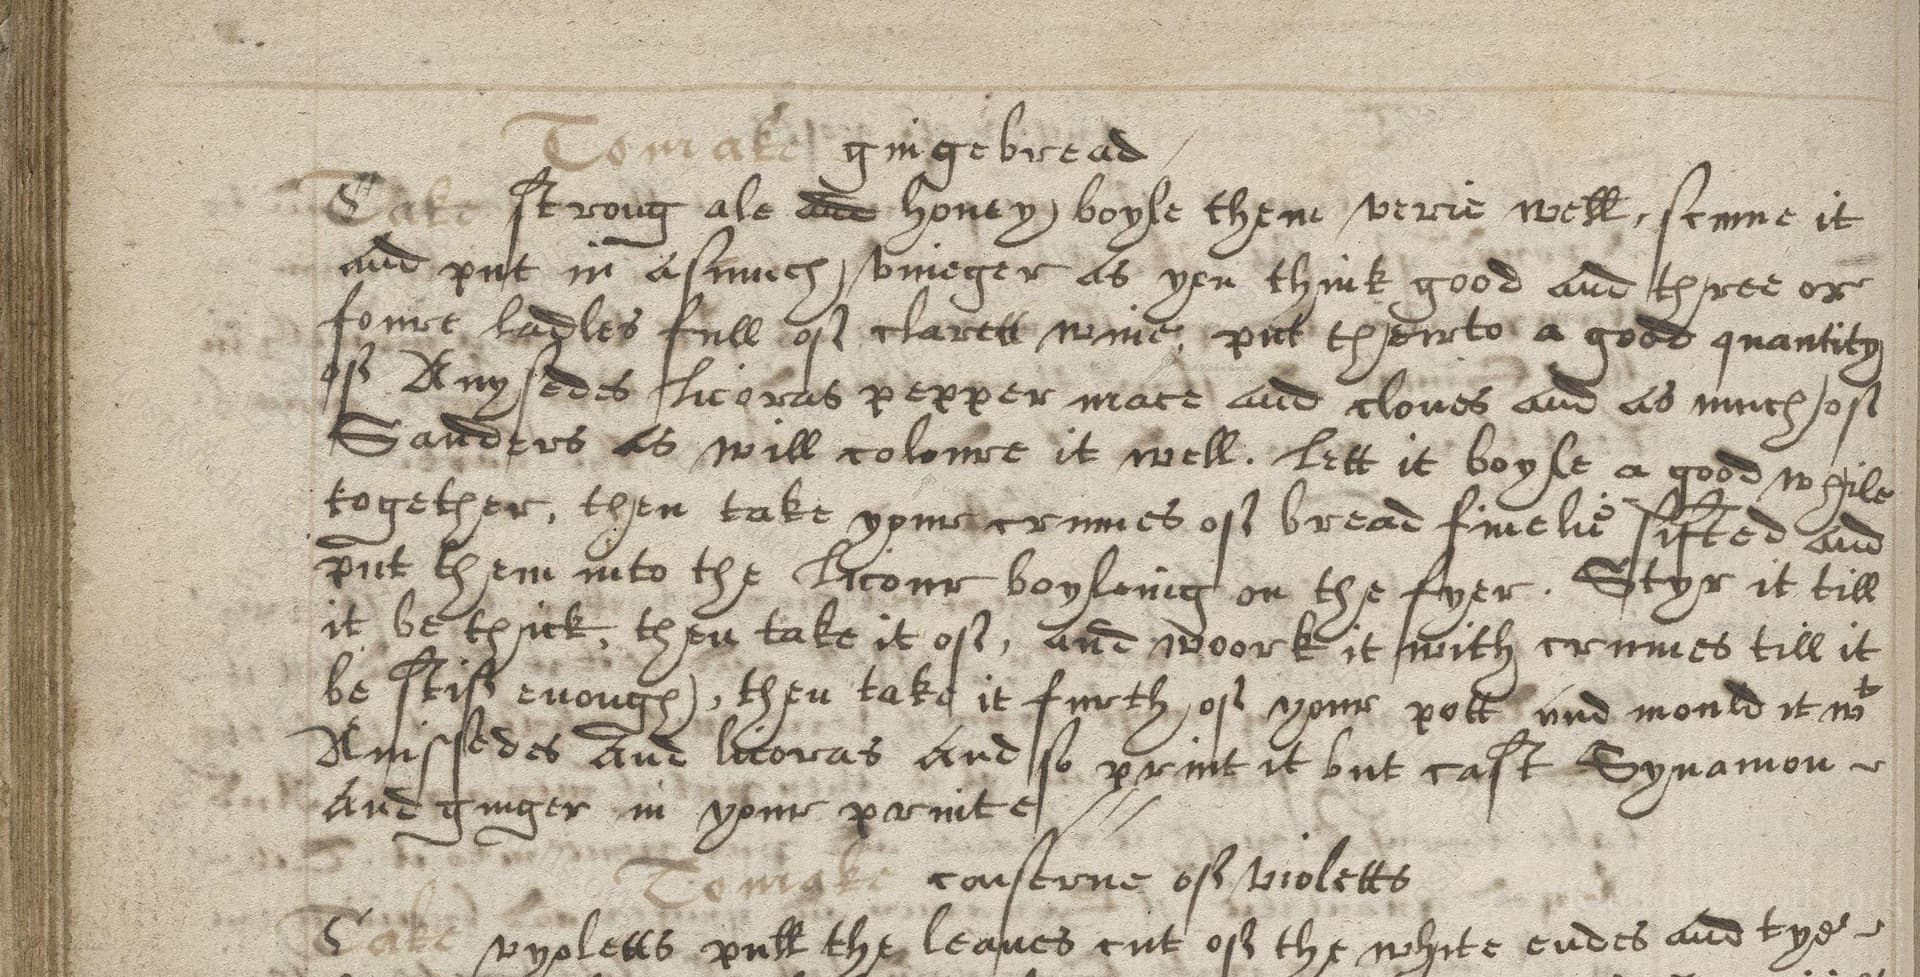 To make gingebread
Take strong ale and honey, boyle them verie well, scume it
and put in asmuch vineger as you think good and three or
foure ladles full of clarett wine, put therto a good quantity
of Anysedes licoras pepper mace and cloves and as much of
Sanders as will coloure it well. Lett it boyle a good while
together, then take your crumes of bread finelie sifted and
put them into the licour boyleing on the fyer. Styr it till
it be thick, then take it of, and woork it with crumes till it
be stif enough, then take it furth of your pott and mould it wt
Anissedes and licoras and so print it but cast Synamon
and ginger in your printe
To make conserve of violetts
Take vyoletts pull the leaves cut of the white endes and tye